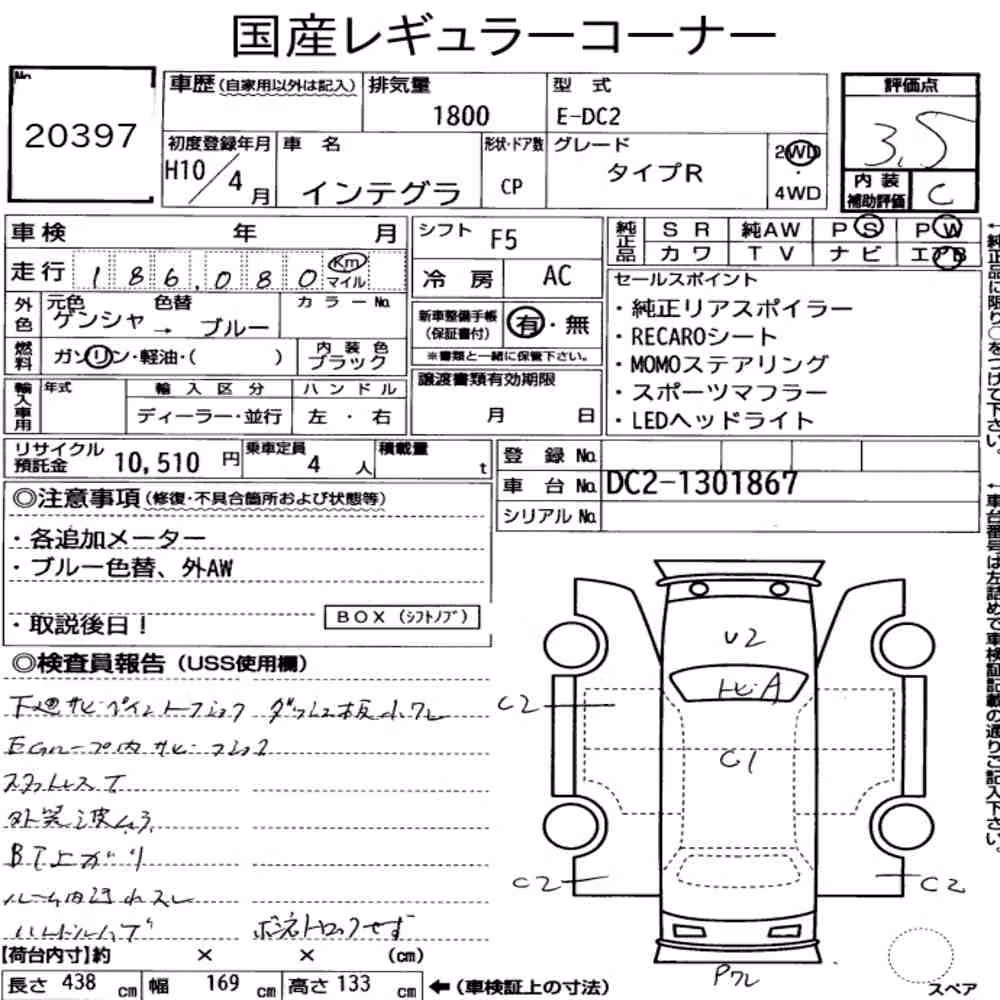 国産レギュラーコーナー
No.
20397
車歴(自家用以外は記入)
排気量
1800
型 式
E-DC2
評価点
3.5
初度登録年月
H10/4月
車 名
インテグラ
形状・ドア数
CP
グレード
タイプR
2WD
・
4WD
内装
補助評価
C
車検 年 月
シフト F5
純正品
SR 純AW PS PW
カワ TV ナビ エアB
走行 186,080 Km
マイル
冷房 AC
セールスポイント
・純正リアスポイラー
・RECAROシート
・MOMOステアリング
・スポーツマフラー
・LEDヘッドライト
外色
元色 色替 カラーNo.
ゲンシャ → ブルー
新車整備手帳
(保証書付)
有・無
※書類と一緒に保管下さい。
燃料
ガソリン・軽油・( )
内装色
ブラック
輸入車用
年式
輸入区分
ハンドル
ディーラー・並行
左・右
譲渡書類有効期限
月 日
リサイクル
預託金 10,510 円
乗車定員
4 人
積載量
t
登録 No.
車台 No. DC2-1301867
シリアル No.
◎注意事項(修復・不具合箇所および状態等)
・各追加メーター
・ブルー色替、外AW
・取説後日!
BOX (シフトノブ)
◎検査員報告(USS使用欄)
下廻サビペイントフラック ダッシュ板小ワレ
外装波ムラ
BT上ガリ
ボネトロックせず
U2
トビA
C2
C1
C2
C2
Pワレ
【荷台内寸】約 × × (cm)
長さ 438 cm 幅 169 cm 高さ 133 cm ←(車検証上の寸法)
スペア
←純正品に限り○をつけて下さい。
←車台番号は左詰めで車検証記載の通りご記入下さい。